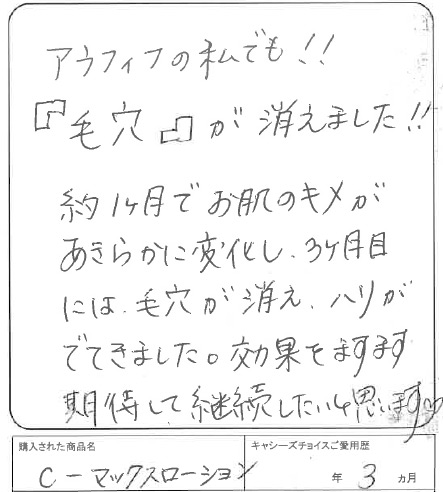 アラフィフの私でも!!
『毛穴』が消えました!!
約1ヶ月でお肌のキメが
あきらかに変化し、3ヶ月目
には、毛穴が消え、ハリが
でてきました。効果をますます
期待して継続したいと思います♡
購入された商品名
C-マックスローション
キャシーズチョイスご愛用歴
年 3 ヵ月